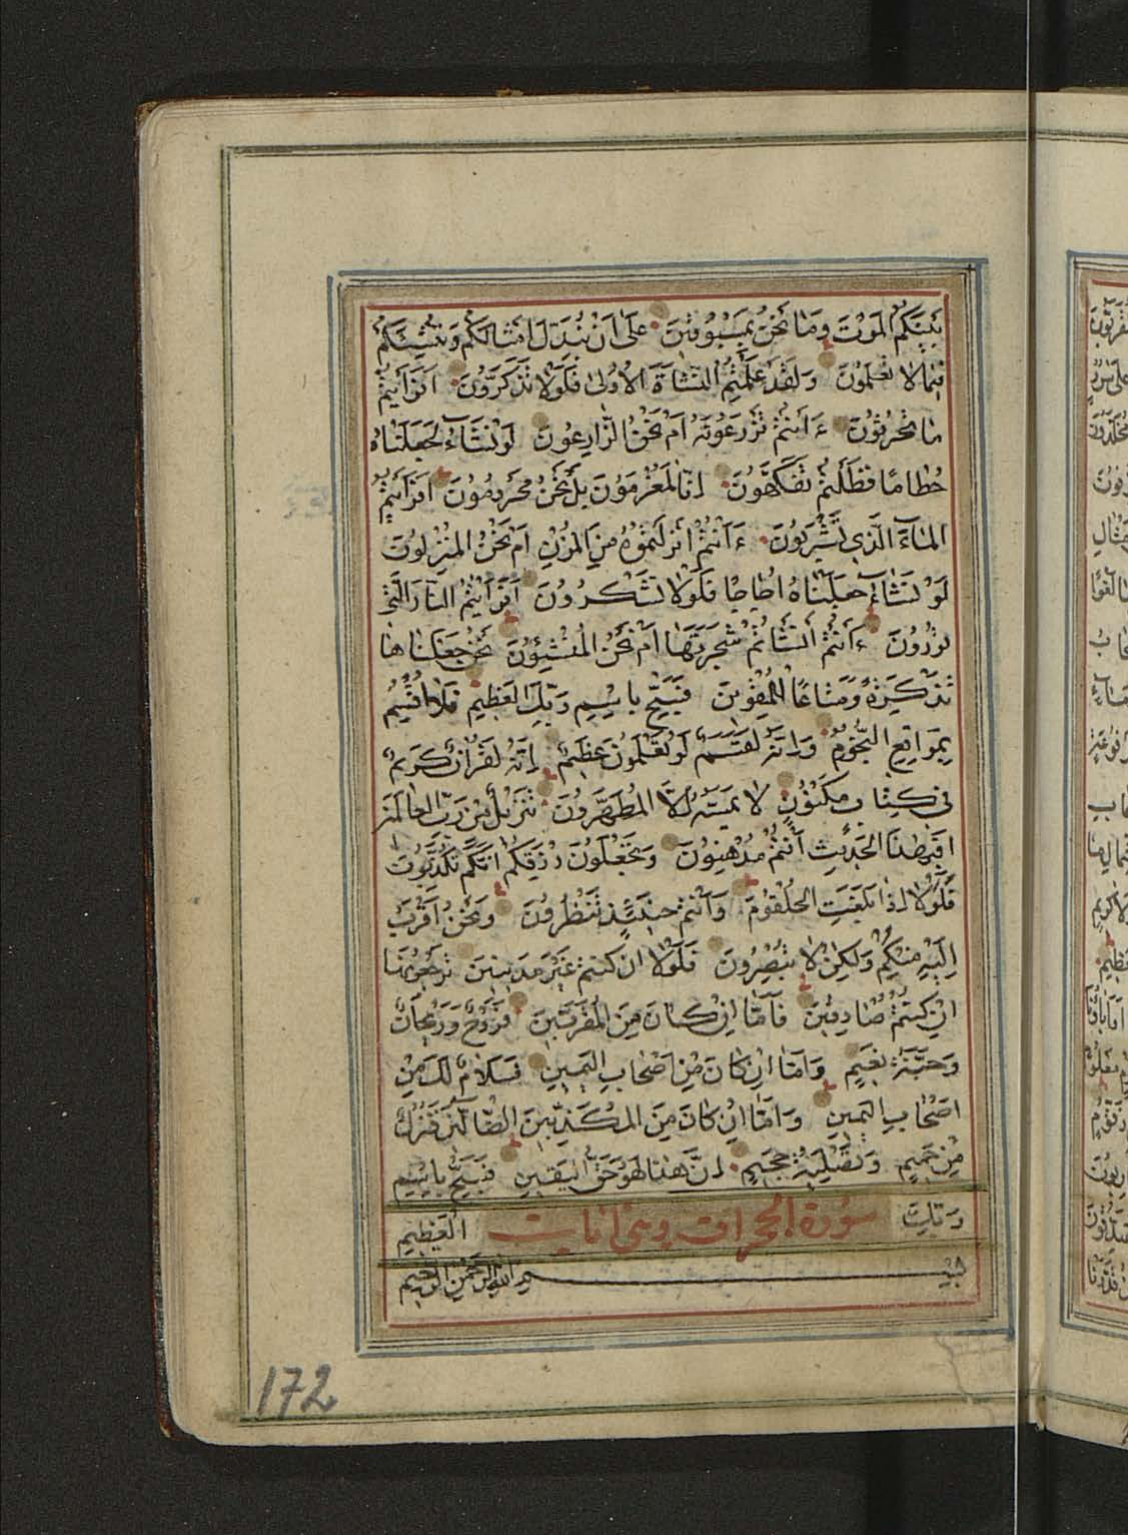 بَيْنَكُمُ الْمَوْتَ وَمَا نَحْنُ بِمَسْبُوقِينَ عَلَىٰ اَنْ نُبَدِّلَ اَمْثَالَكُمْ وَنُنْشِئَكُمْ
فِيمَا لَا تَعْلَمُونَ وَلَقَدْ عَلِمْتُمُ النَّشْاَةَ الْاُولىٰ فَلَوْلَا تَذَكَّرُونَ اَفَرَاَيْتُمْ
مَا تَحْرُثُونَ ءَاَنْتُمْ تَزْرَعُونَهُ اَمْ نَحْنُ الزَّارِعُونَ لَوْ نَشَآءُ لَجَعَلْنَاهُ
حُطَامًا فَظَلْتُمْ تَفَكَّهُونَ اِنَّا لَمُغْرَمُونَ بَلْ نَحْنُ مَحْرُومُونَ اَفَرَاَيْتُمُ
الْمَآءَ الَّذِى تَشْرَبُونَ ءَاَنْتُمْ اَنْزَلْتُمُوهُ مِنَ الْمُزْنِ اَمْ نَحْنُ الْمُنْزِلُونَ
لَوْ نَشَآءُ جَعَلْنَاهُ اُجَاجًا فَلَوْلَا تَشْكُرُونَ اَفَرَاَيْتُمُ النَّارَ الَّتِى
تُورُونَ ءَاَنْتُمْ اَنْشَاْتُمْ شَجَرَتَهَا اَمْ نَحْنُ الْمُنْشِؤُنَ نَحْنُ جَعَلْنَاهَا
تَذْكِرَةً وَمَتَاعًا لِلْمُقْوِينَ فَسَبِّحْ بِاسْمِ رَبِّكَ الْعَظِيمِ فَلَا اُقْسِمُ
بِمَوَاقِعِ النُّجُومِ وَاِنَّهُ لَقَسَمٌ لَوْ تَعْلَمُونَ عَظِيمٌ اِنَّهُ لَقُرْاٰنٌ كَرِيمٌ
فِى كِتَابٍ مَكْنُونٍ لَا يَمَسُّهُ اِلَّا الْمُطَهَّرُونَ تَنْزِيلٌ مِنْ رَبِّ الْعَالَمِينَ
اَفَبِهٰذَا الْحَدِيثِ اَنْتُمْ مُدْهِنُونَ وَتَجْعَلُونَ رِزْقَكُمْ اَنَّكُمْ تُكَذِّبُونَ
فَلَوْلَا اِذَا بَلَغَتِ الْحُلْقُومَ وَاَنْتُمْ حِينَئِذٍ تَنْظُرُونَ وَنَحْنُ اَقْرَبُ
اِلَيْهِ مِنْكُمْ وَلٰكِنْ لَا تُبْصِرُونَ فَلَوْلَا اِنْ كُنْتُمْ غَيْرَ مَدِينِينَ تَرْجِعُونَهَا
اِنْ كُنْتُمْ صَادِقِينَ فَاَمَّا اِنْ كَانَ مِنَ الْمُقَرَّبِينَ فَرَوْحٌ وَرَيْحَانٌ
وَجَنَّةُ نَعِيمٍ وَاَمَّا اِنْ كَانَ مِنْ اَصْحَابِ الْيَمِينِ فَسَلَامٌ لَكَ مِنْ
اَصْحَابِ الْيَمِينِ وَاَمَّا اِنْ كَانَ مِنَ الْمُكَذِّبِينَ الضَّالِّينَ فَنُزُلٌ
مِنْ حَمِيمٍ وَتَصْلِيَةُ جَحِيمٍ اِنَّ هٰذَا لَهُوَ حَقُّ الْيَقِينِ فَسَبِّحْ بِاسْمِ
رَبِّكَ الْعَظِيمِ
بِسْمِ اللّٰهِ الرَّحْمٰنِ الرَّحِيمِ
172